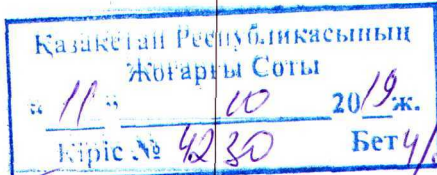 Қазақстан Республикасының
Жоғарғы Соты
"11" 10 2019 ж.
Кіріс № 4230 Бет 4/